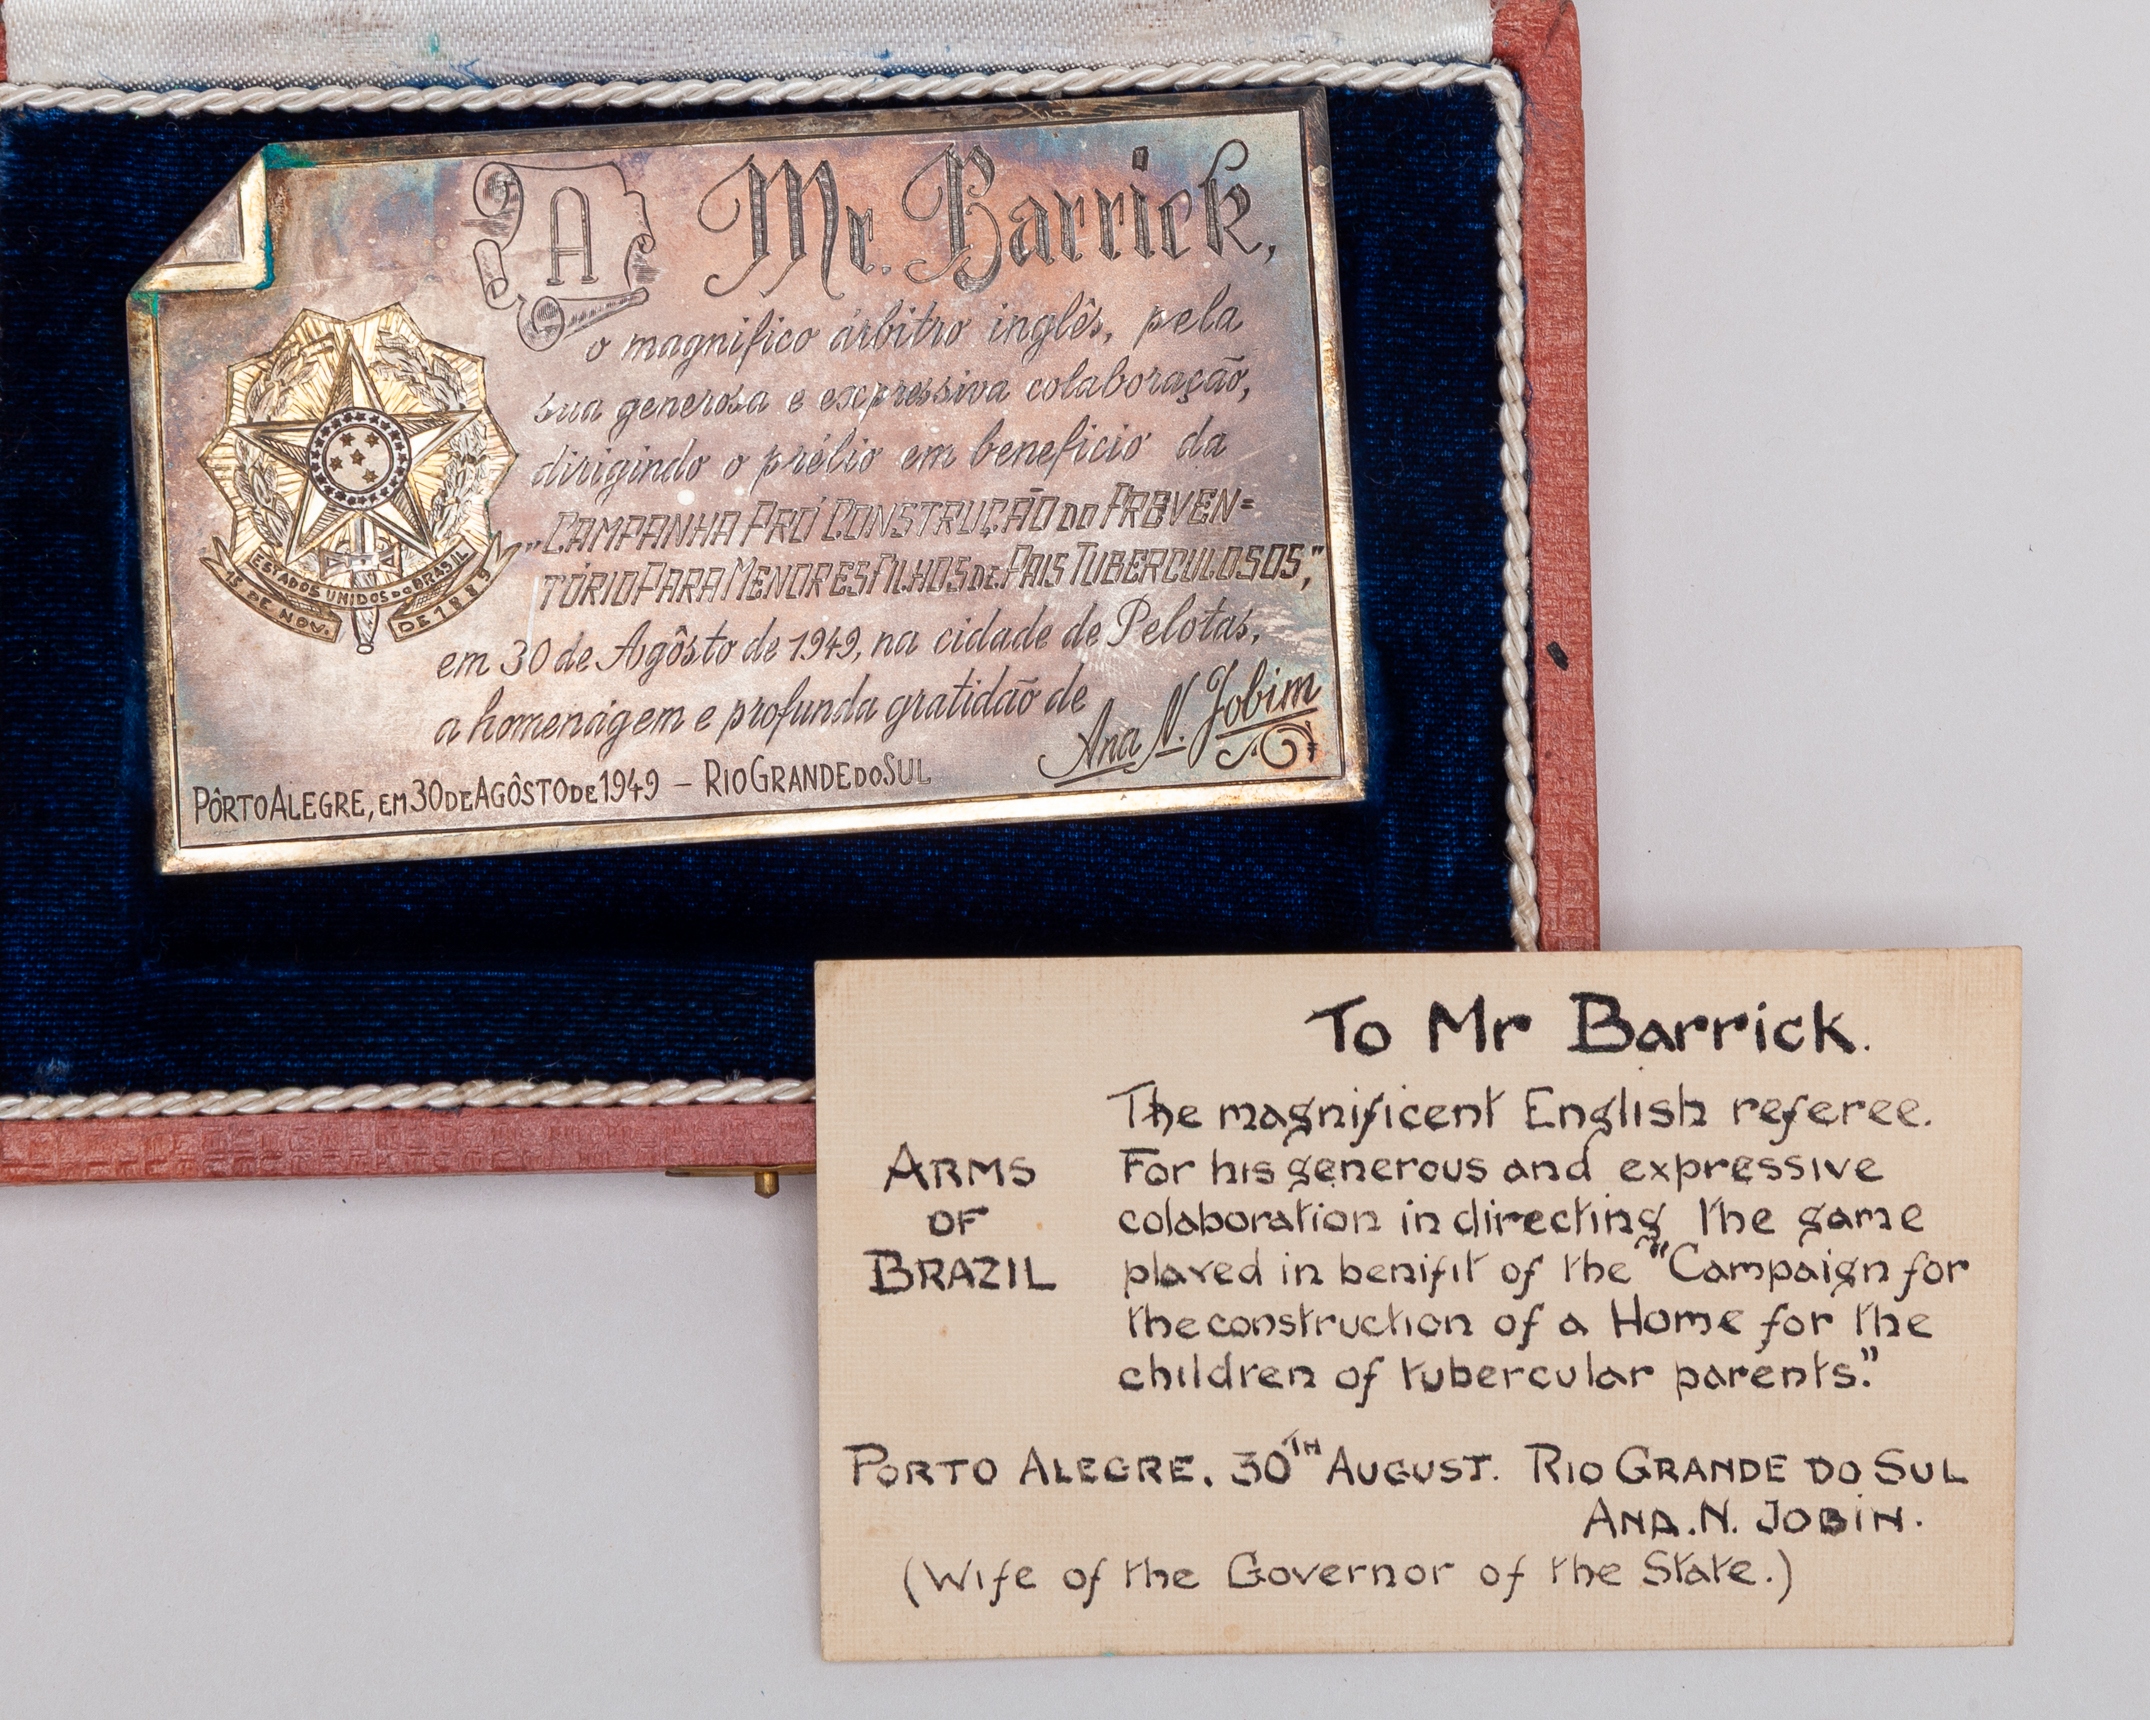 A Mr. Barrick,
o magnifico árbitro inglês, pela
sua generosa e expressiva colaboração,
dirigindo o prélio em beneficio da
"CAMPANHA PRÓ CONSTRUÇÃO DO PREVEN=
TÓRIO PARA MENORES FILHOS DE PAIS TUBERCULOSOS,"
em 30 de Agôsto de 1949, na cidade de Pelotas,
a homenagem e profunda gratidão de
Ana N. Jobim
PÔRTO ALEGRE, EM 30 DE AGÔSTO DE 1949 – RIO GRANDE DO SUL
ESTADOS UNIDOS DO BRASIL
15 DE NOV. DE 1889
To Mr Barrick.
The magnificent English referee.
For his generous and expressive
colaboration in directing the game
played in benifit of the "Campaign for
the construction of a Home for the
children of tubercular parents."
ARMS
OF
BRAZIL
PORTO ALEGRE. 30TH AUGUST. RIO GRANDE DO SUL
ANA. N. JOBIN.
(Wife of the Governor of the State.)